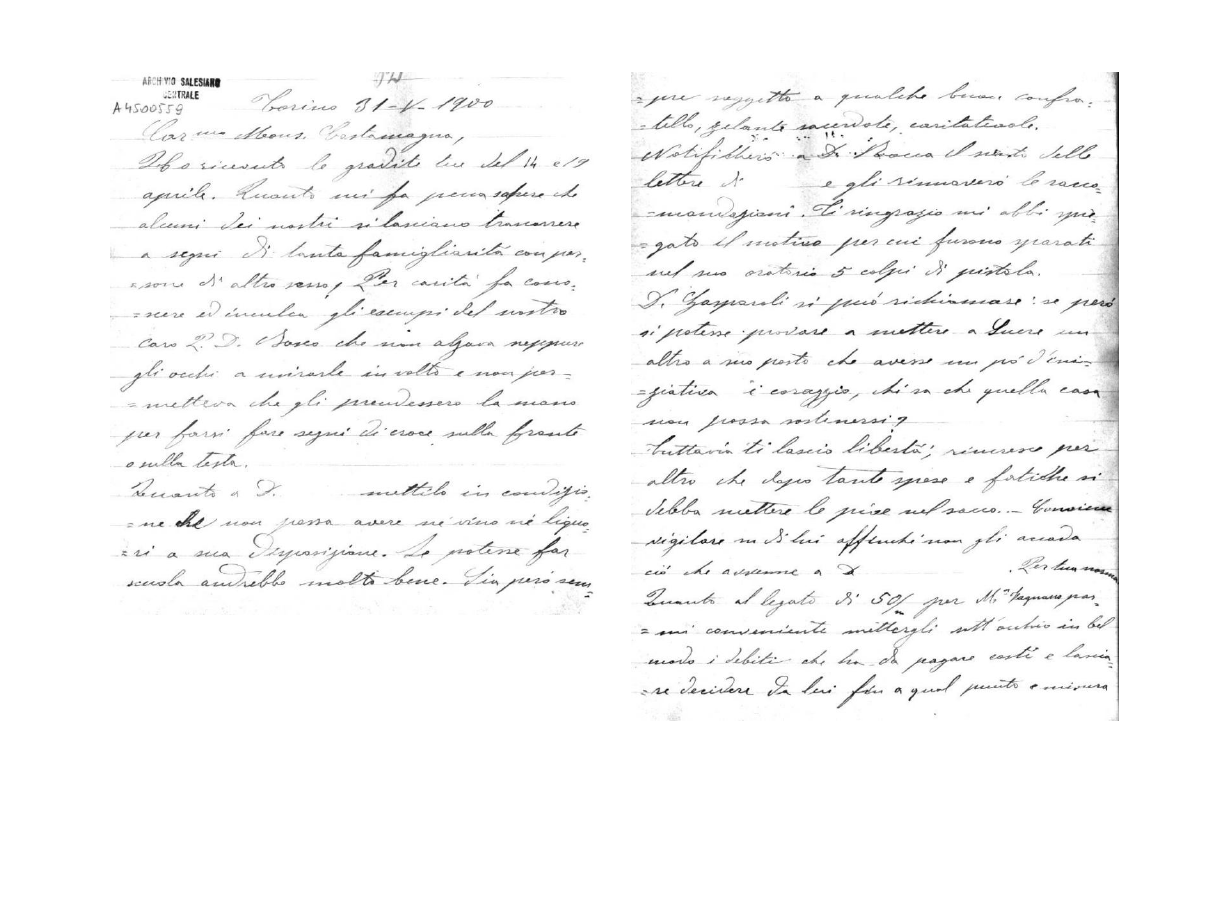 ARCHIVIO SALESIANO
CENTRALE
A4500559
Torino 31-V-1900
Car.mo Mons. Costamagna,
Ho ricevuto le gradite tue del 14 e 19
aprile. Quanto mi fa pena sapere che
alcuni dei nostri si lasciano trascorrere
a segni di tanta famigliarità con per-
=sone di altro sesso! Per carità fa cono-
=scere ed inculca gli esempi del nostro
caro P. D. Bosco che non alzava neppure
gli occhi a mirarle in volto e non per=
=metteva che gli prendessero la mano
per farsi fare segni di croce sulla fronte
o sulla testa.
Quanto a D. mettilo in condizio-
=ne che non possa avere né vino né liquo-
=ri a sua disposizione. Se potesse far
scuola andrebbe molto bene. Sia però sem-
=pre soggetto a qualche buon confra-
=tello, zelante sacerdote, caritatevole.
Notificherò a D. Rocca il sunto delle
lettere di e gli rinnoverò le racco-
=mandazioni. Ti ringrazio mi abbi spie-
=gato il motivo per cui furono sparati
nel suo oratorio 5 colpi di pistola.
D. Gasparoli si può richiamare: se però
si potesse provare a mettere a Sucre un
altro a suo posto che avesse un pó d'ini-
=ziativa i coraggio, chi sa che quella casa
non possa sostenersi?
Tuttavia ti lascio libertà; rincresce per
altro che dopo tante spese e fatiche si
debba mettere le pive nel sacco. - Conviene
vigilare su di lui affinché non gli accada
ciò che avvenne a D Per tua norma
Quanto al legato di 50/m per M.r Fagnano par-
=mi conveniente mettergli sott'occhio in bel
modo i debiti che ha da pagare costì e lascia-
=re decidere da lui fin a qual punto e misura